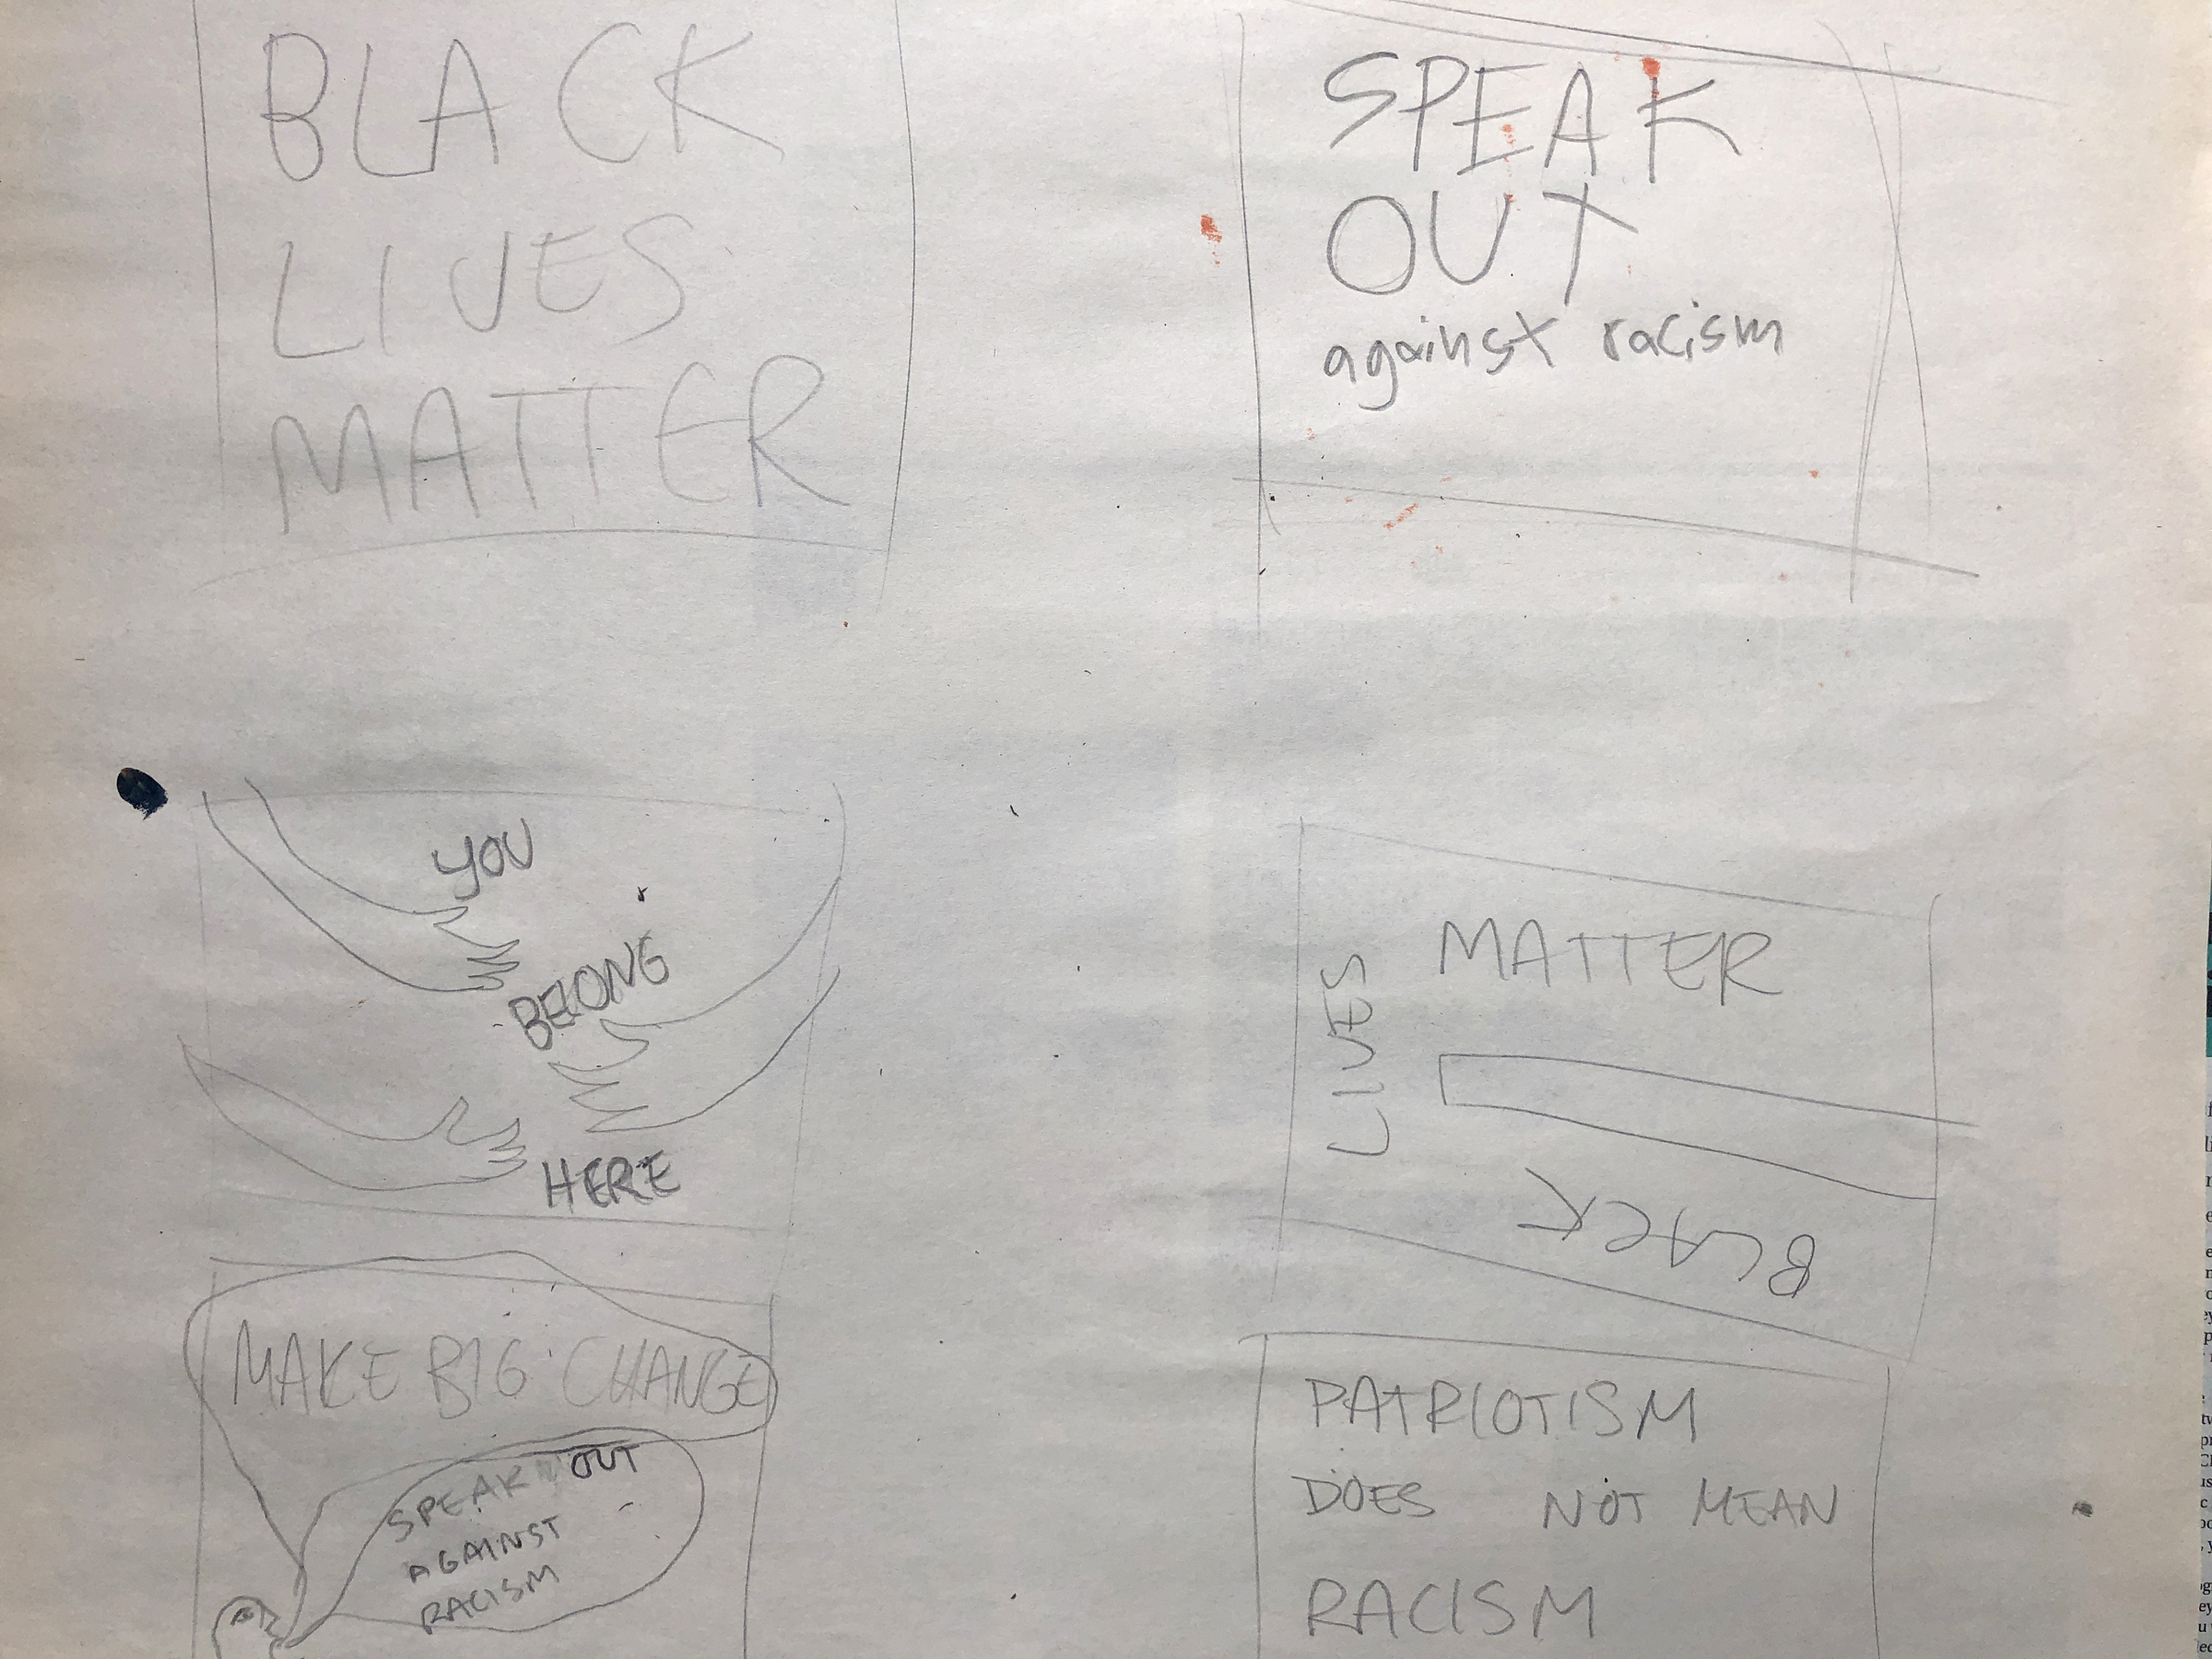 BLACK
LIVES
MATTER
SPEAK
OUT
against racism
YOU
BELONG
HERE
LIVES
MATTER
BLACK
MAKE BIG CHANGE
SPEAK OUT
AGAINST
RACISM
PATRIOTISM
DOES NOT MEAN
RACISM